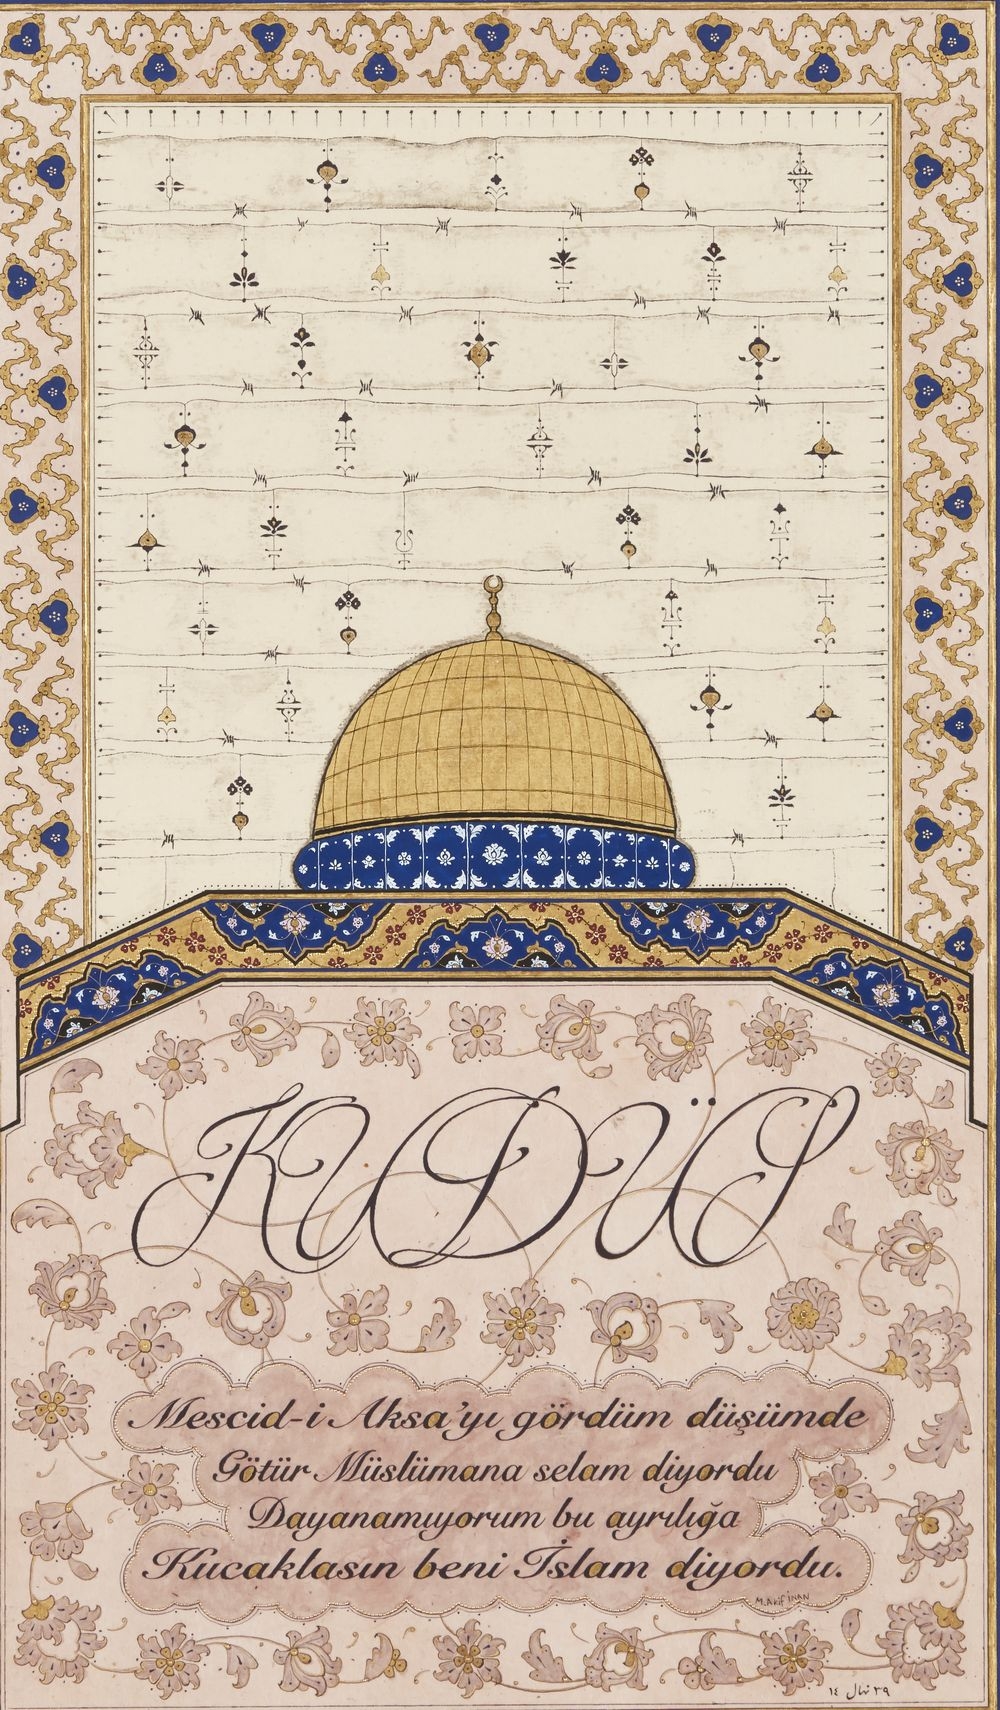 KUDÜS
Mescid-i Aksa'yı gördüm düşümde
Götür Müslümana selam diyordu
Dayanamıyorum bu ayrılığa
Kucaklasın beni İslam diyordu.
M.Akif İNAN